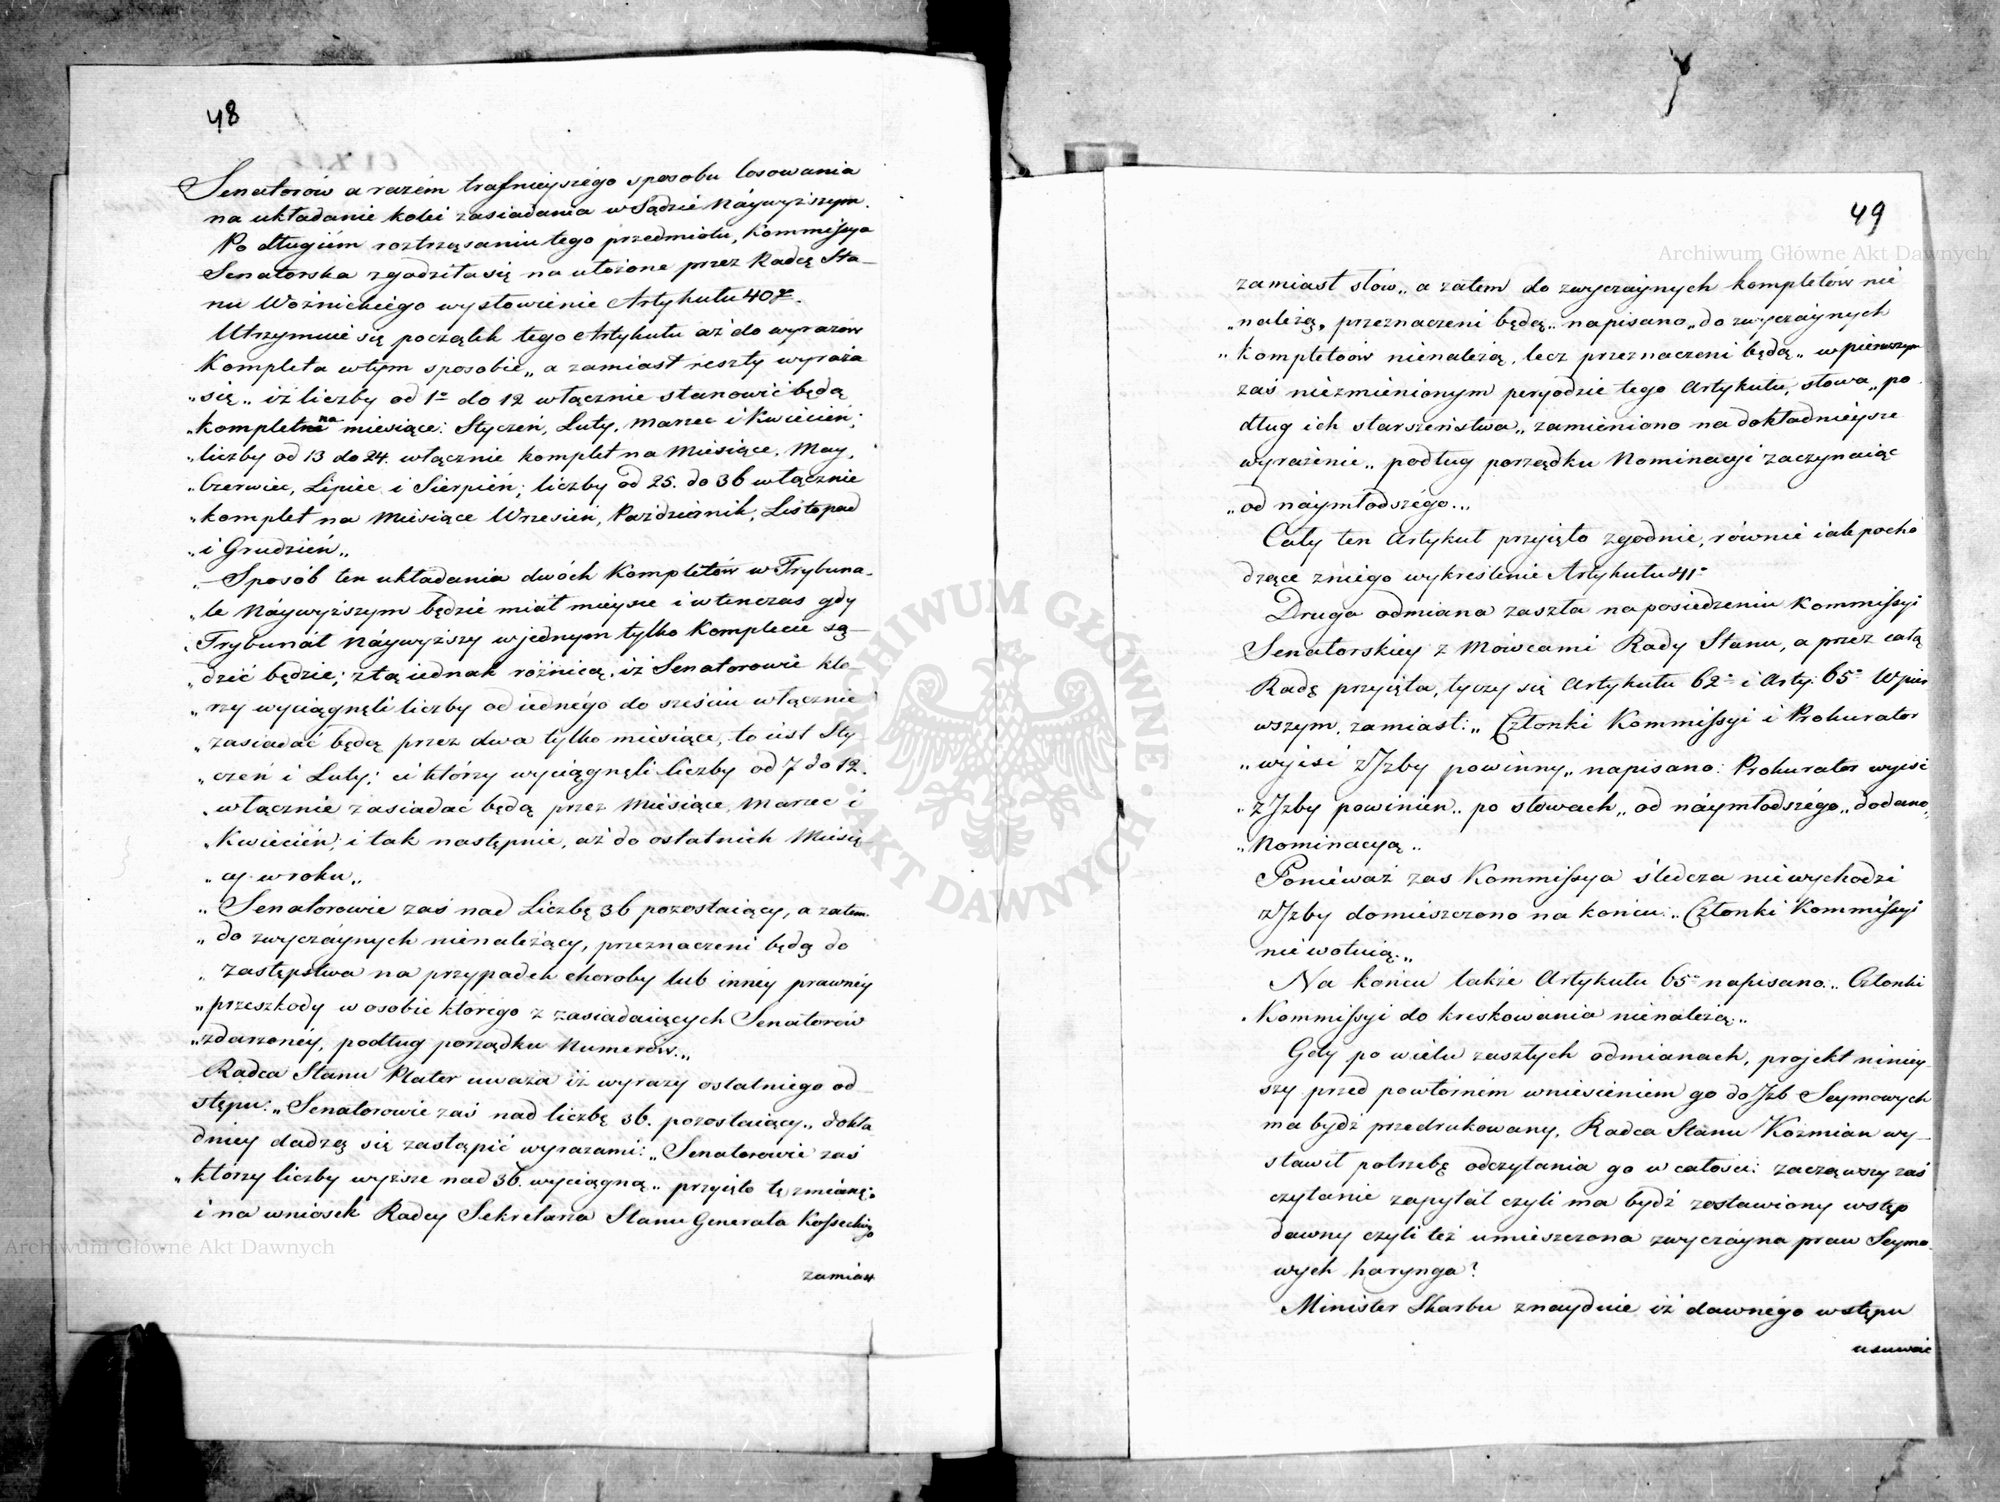 48
Senatorów a razém trafnieyszégo sposobu losowania
na układanie kolei zasiadania w Sądzie Náywyższym.
Po długiém roztrząsaniu tego przedmiotu, Kommissya
Senatorska zgodziła się na ułożone przez Radcę Sta-
nu Woźnickiégo wysłowienie Artykułu 40go.
Utrzymuie się początek tego Artykułu aż do wyrazów
Kompleta w tym sposobie„ a zamiast reszty wyraża
„się„ iż liczby od 1o do 12 włącznie stanowić będą
„komplet na miesiące: Styczeń, Luty, Marzec i Kwiecień;
„liczby od 13 do 24. włącznie komplet na Miesiące, May,
„Czerwiec, Lipiec i Sierpień; liczby od 25. do 36 włącznie
„komplet na Miesiące Wrzesień, Październik, Listopad
„i Grudzień„
„Sposób ten układania dwóch Kompletów w Trybuna-
„le Náywyższym będzie miał mieysce i wtenczas gdy
„Trybunał Náywyższy w jednym tylko Komplecie są-
„dzić będzie; z tą iednak różnicą, iż Senatorowie któ-
„rzy wyciągnęli liczby od iednégo do sześciu włącznie
„zasiadać będą przez dwa tylko miesiące, to iest Sty-
„czeń i Luty; ci którzy wyciągnęli liczby od 7 do 12.
„włącznie zasiadać będą przez Miesiące, Marzec i
„Kwiecień, i tak następnie, aż do ostatnich Miesię-
„cy w roku„
„Senatorowie zaś nad Liczbę 36 pozostaiący, a zatem
„do zwyczáynych nienależący, przeznaczeni będą do
„zastępstwa na przypadek choroby lub innéy prawnéy
„przeszkody w osobie którego z zasiadaiących Senatorów
„zdarzonéy, podług porządku Numerów.„
Radca Stanu Plater uważa iż wyrazy ostatniego od-
stępu: „Senatorowie zaś nad liczbę 36. pozostaiący„ dokła
dniey dadzą się zastąpić wyrazami: „Senatorowie zaś
„którzy liczby wyższe nad 36. wyciągną„ przyięto tę zmianę;
i na wniosek Radcy Sekretarza Stanu Generała Kosseckiego
zamiast
49
zamiast słów„ a zatem do zwyczáynych kompletów nie
„należą, przeznaczeni będą„ napisano „do zwyczáynych
„kompletoów nienależą, lecz przeznaczeni będą„ w pierwszym
zaś niezmienionym peryodzie tego Artykułu, słowa „po
dług ich starszeństwa„ zamieniono na dokładnieysze
wyrażenie„ podług porządku Nominacyi zaczynaiąc
„od náymłodszégo...
Cały ten Artykuł przyięto zgodnie, równie iak pocho
dzące z niego wykreślenie Artykułu 41o
Druga odmiana zaszła na posiedzeniu Kommissyi
Senatorskiey z Mówcami Rady Stanu, a przez całą
Radę przyięta, tyczy się Artykułu 62o i Arty. 65o W pier
wszym, zamiast: „Członki Kommissyi i Prokurator
„wyiść z Izby powinny„ napisano: Prokurator wyiść
„z Izby powinien„ po słowach „od náymłodszégo„ dodano,
„Nominacyą„
Poniéważ zaś Kommissya śledcza nie wychodzi
z Izby domieszczono na końcu: „Członki Kommissyi
nie wotuią.„
Na końcu także Artykułu 65o napisano: „Członki
„Kommissyi do kreskowania nienależą:„
Gdy po wielu zaszłych odmianach, projekt niniey-
szy przed powtórném wniesieniem go do Izb Seymowych
ma bydź przedrukowany, Radca Stanu Koźmian wy-
stawił potrzebę odczytania go w całości: zacząwszy zaś
czytanie zapytał czyli ma bydź zostawiony wstęp
dawny czyli też umieszczona zwyczáyna praw Seymo-
wych harynga?
Minister Skarbu znayduie iż dawnégo wstępu
usuwać
Archiwum Główne Akt Dawnych
Archiwum Główne Akt Dawnych
ARCHIWUM GŁÓWNE · AKT DAWNYCH ·